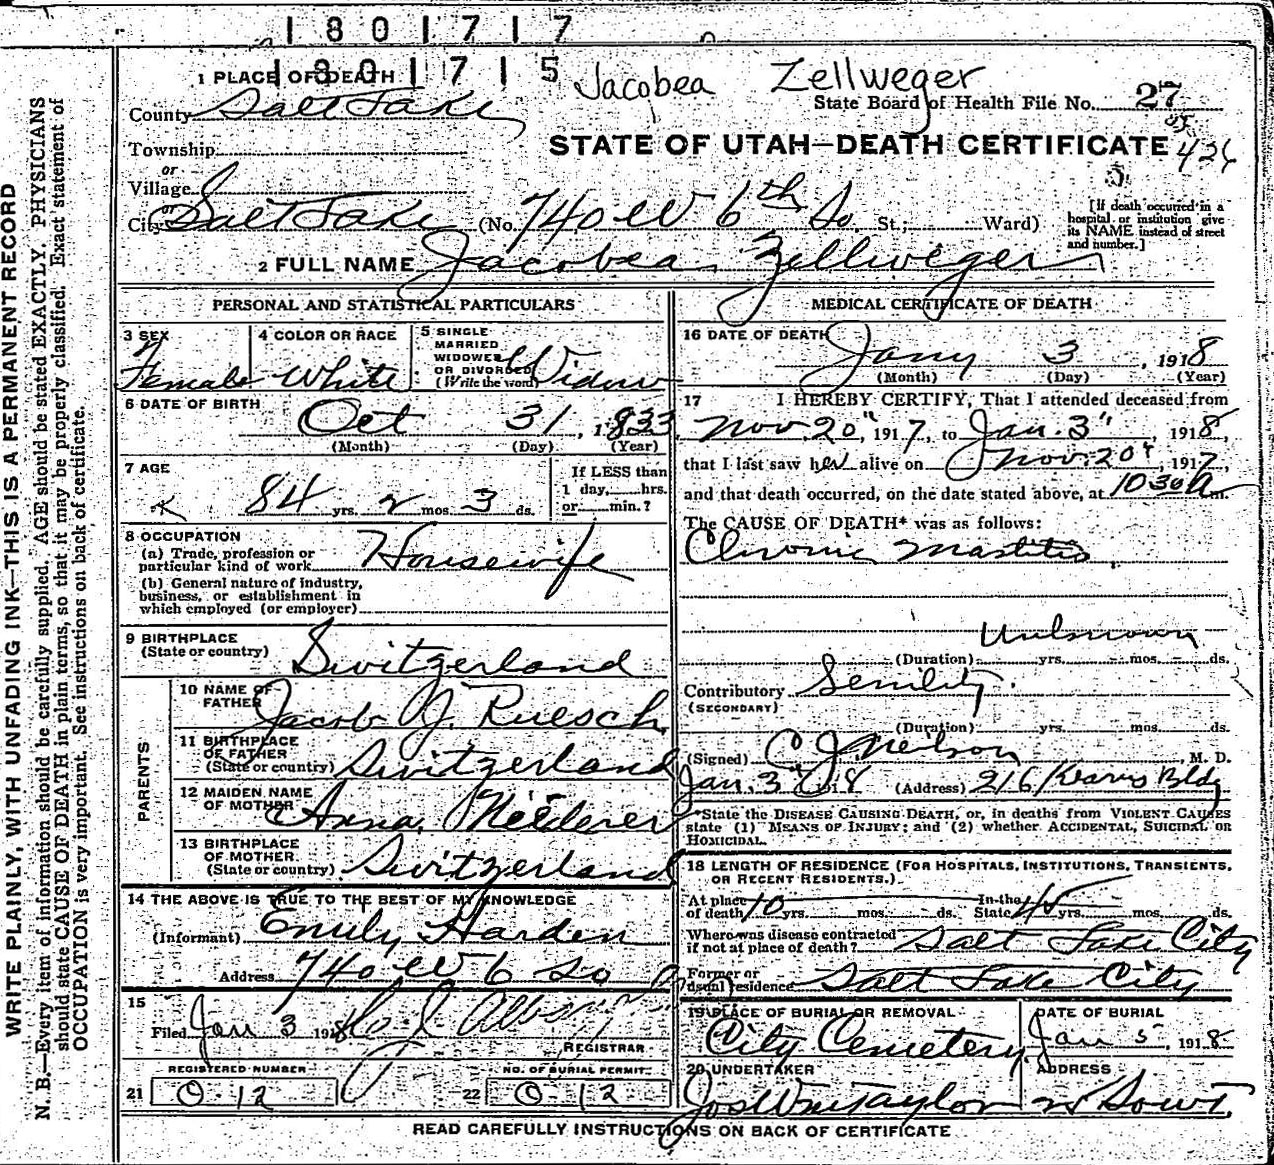 1801717
1801715
Jacobea Zellweger
1 PLACE OF DEATH
State Board of Health File No. 27
County Salt Lake
STATE OF UTAH—DEATH CERTIFICATE
426
Township
or
Village
or
City Salt Lake (No. 740 W 6th So. St.; Ward)
[If death occurred in a hospital or institution give its NAME instead of street and number.]
2 FULL NAME Jacobea Zellweger
PERSONAL AND STATISTICAL PARTICULARS
3 SEX Female
4 COLOR OR RACE White
5 SINGLE MARRIED WIDOWED OR DIVORCED (Write the word) Widow
6 DATE OF BIRTH
Oct 31, 1833
(Month) (Day) (Year)
7 AGE
84 yrs. 2 mos. 3 ds.
If LESS than 1 day, hrs. or min.?
8 OCCUPATION
(a) Trade, profession or particular kind of work Housewife
(b) General nature of industry, business, or establishment in which employed (or employer)
9 BIRTHPLACE
(State or country) Switzerland
PARENTS
10 NAME OF FATHER Jacob J. Ruesch
11 BIRTHPLACE OF FATHER
(State or country) Switzerland
12 MAIDEN NAME OF MOTHER Anna
13 BIRTHPLACE OF MOTHER
(State or country) Switzerland
14 THE ABOVE IS TRUE TO THE BEST OF MY KNOWLEDGE
(Informant) Emily Harden
Address 740 W 6 So
15
Filed Jan 3 1918
REGISTRAR
REGISTERED NUMBER
21 0-12
NO. OF BURIAL PERMIT
22 0-12
MEDICAL CERTIFICATE OF DEATH
16 DATE OF DEATH
Jany 3, 1918
(Month) (Day) (Year)
17 I HEREBY CERTIFY, That I attended deceased from
Nov. 20", 1917, to Jan. 3", 1918,
that I last saw her alive on Nov. 20", 1917,
and that death occurred, on the date stated above, at 10 30 A m.
The CAUSE OF DEATH* was as follows:
Chronic Mastitis
Unknown
(Duration) yrs. mos. ds.
Contributory Senility.
(SECONDARY)
(Duration) yrs. mos. ds.
(Signed) C. J. Neilson, M. D.
Jan. 3 1918 (Address) 216 Kearns Bldg
*State the DISEASE CAUSING DEATH, or, in deaths from VIOLENT CAUSES
state (1) MEANS OF INJURY; and (2) whether ACCIDENTAL, SUICIDAL OR
HOMICIDAL.
18 LENGTH OF RESIDENCE (FOR HOSPITALS, INSTITUTIONS, TRANSIENTS,
OR RECENT RESIDENTS.)
At place of death 10 yrs. mos. ds. In the State 45 yrs. mos. ds.
Where was disease contracted if not at place of death? Salt Lake City
Former or usual residence Salt Lake City
19 PLACE OF BURIAL OR REMOVAL
City Cemetery
DATE OF BURIAL
Jan 5, 1918
20 UNDERTAKER
Jos Wm Taylor
ADDRESS
READ CAREFULLY INSTRUCTIONS ON BACK OF CERTIFICATE
WRITE PLAINLY, WITH UNFADING INK—THIS IS A PERMANENT RECORD
N. B.—Every item of information should be carefully supplied. AGE should be stated EXACTLY. PHYSICIANS
should state CAUSE OF DEATH in plain terms, so that it may be properly classified. Exact statement of
OCCUPATION is very important. See instructions on back of certificate.